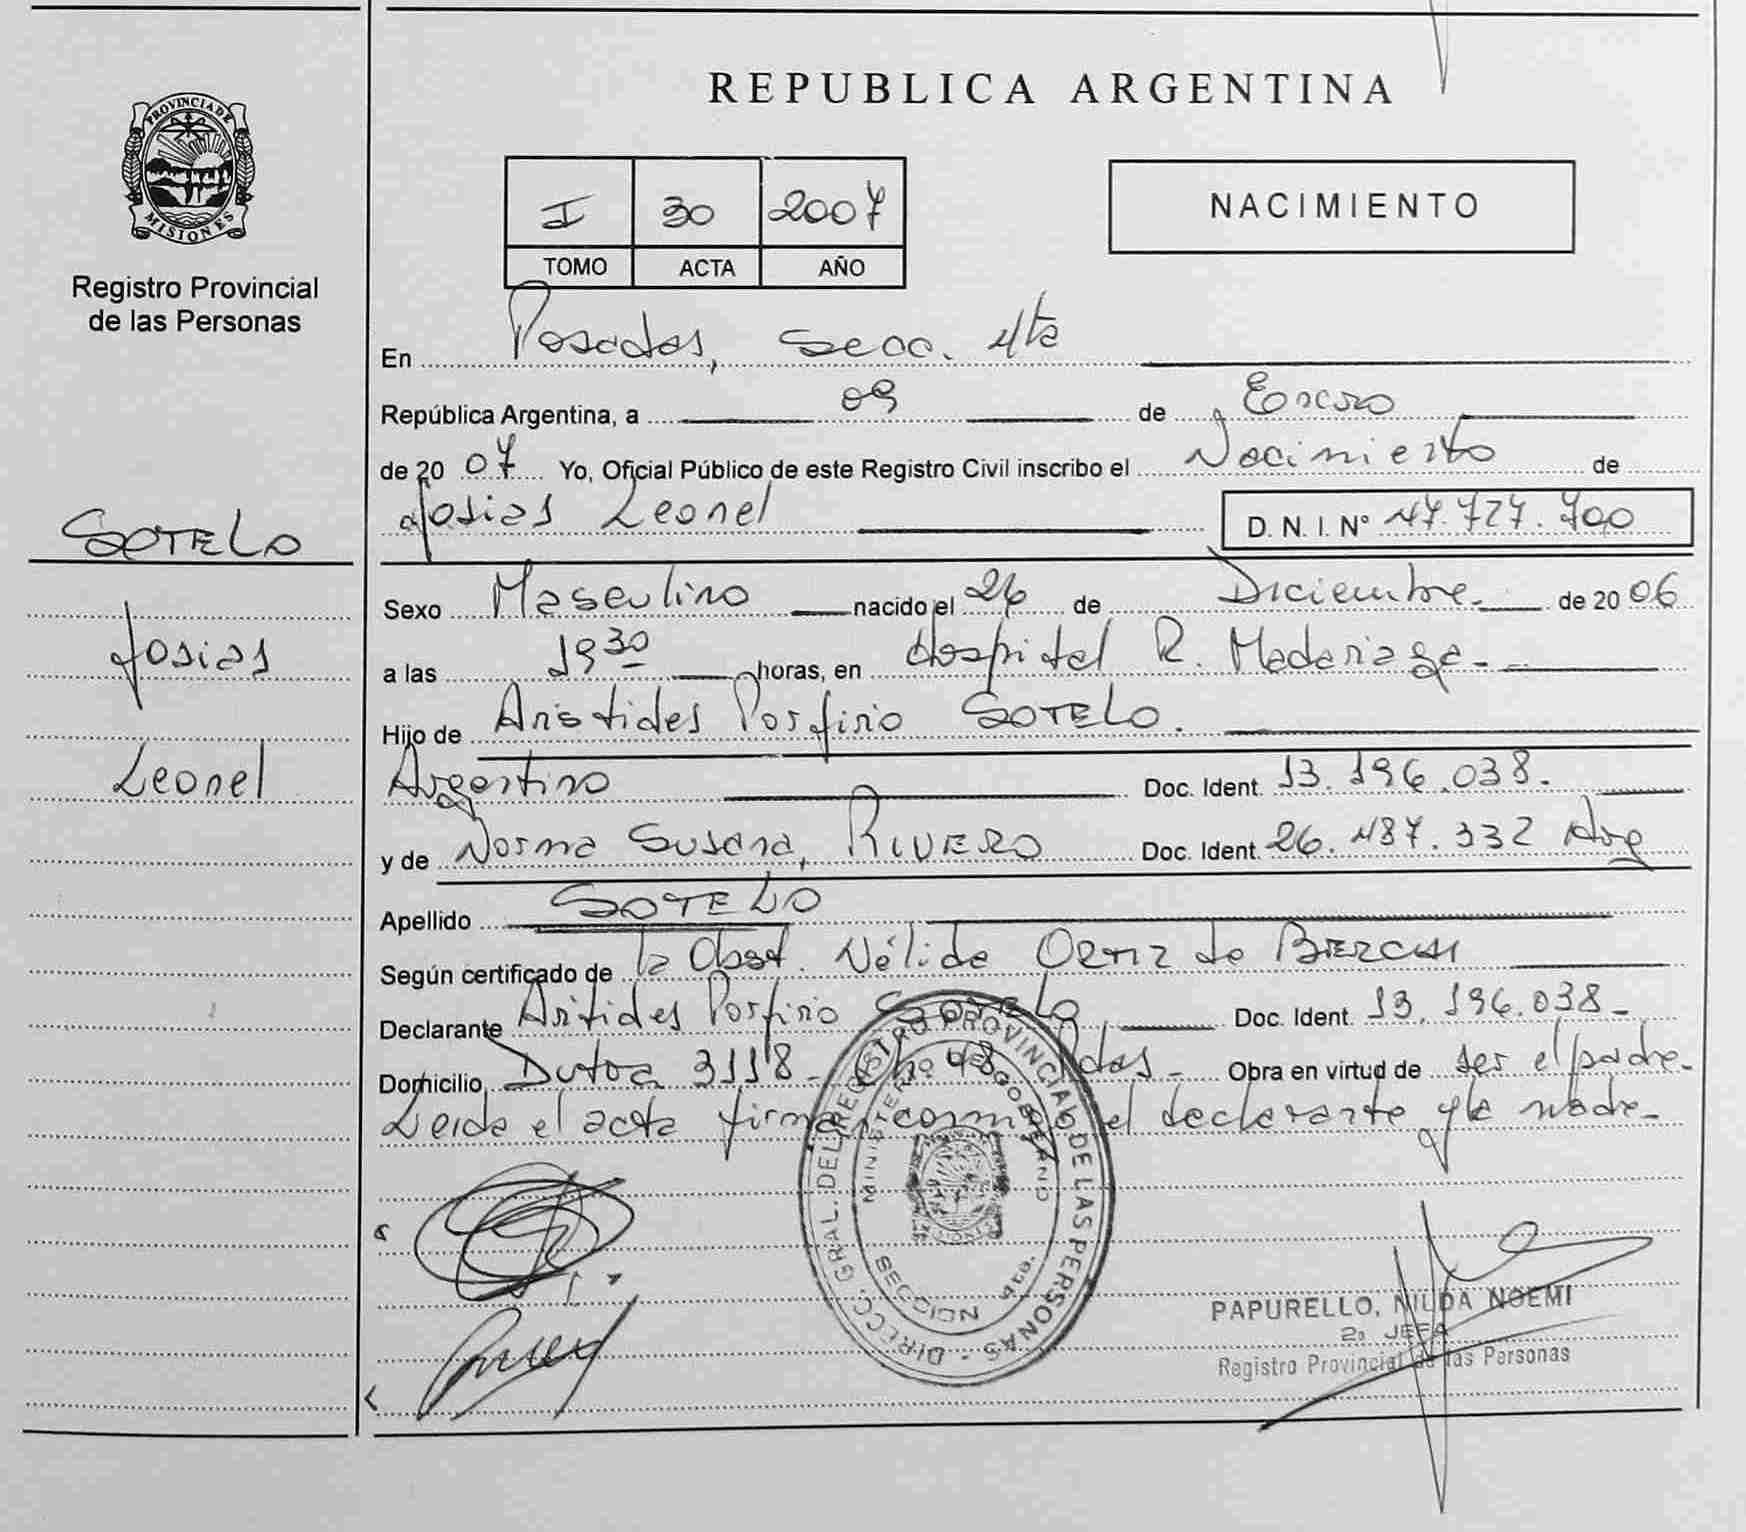 PROVINCIA DE
MISIONES
Registro Provincial
de las Personas
SOTELO
Josias
Leonel
REPUBLICA ARGENTINA
I 30 2007
TOMO ACTA AÑO
NACIMIENTO
En Posadas, Secc. 4ta
República Argentina, a 09 de Enero
de 2007 Yo, Oficial Público de este Registro Civil inscribo el Nacimiento de
Josias Leonel D. N. I. N° 47.727.700
Sexo Masculino nacido el 26 de Diciembre. de 2006
a las 19 30 horas, en Hospital R. Madariaga.
Hijo de Aristides Porfirio SOTELO.
Argentino Doc. Ident. 13.196.038.
y de Norma Susana, RIVERO Doc. Ident. 26.487.332 Arg
Apellido SOTELO
Según certificado de la Obst. Nélida Ortiz de
Declarante Aritides Porfirio SOTELO Doc. Ident. 13.196.038-
Domicilio 3118- Ch. 48 Pdas- Obra en virtud de ser el padre.
Leida el acta firman conmigo el declarante y la madre-
DIRECC. GRAL. DEL REGISTRO PROVINCIAL DE LAS PERSONAS
MINISTERIO DE GOBIERNO
SECCION 4ta.
PAPURELLO, NILDA NOEMI
2a JEFA
Registro Provincial de las Personas